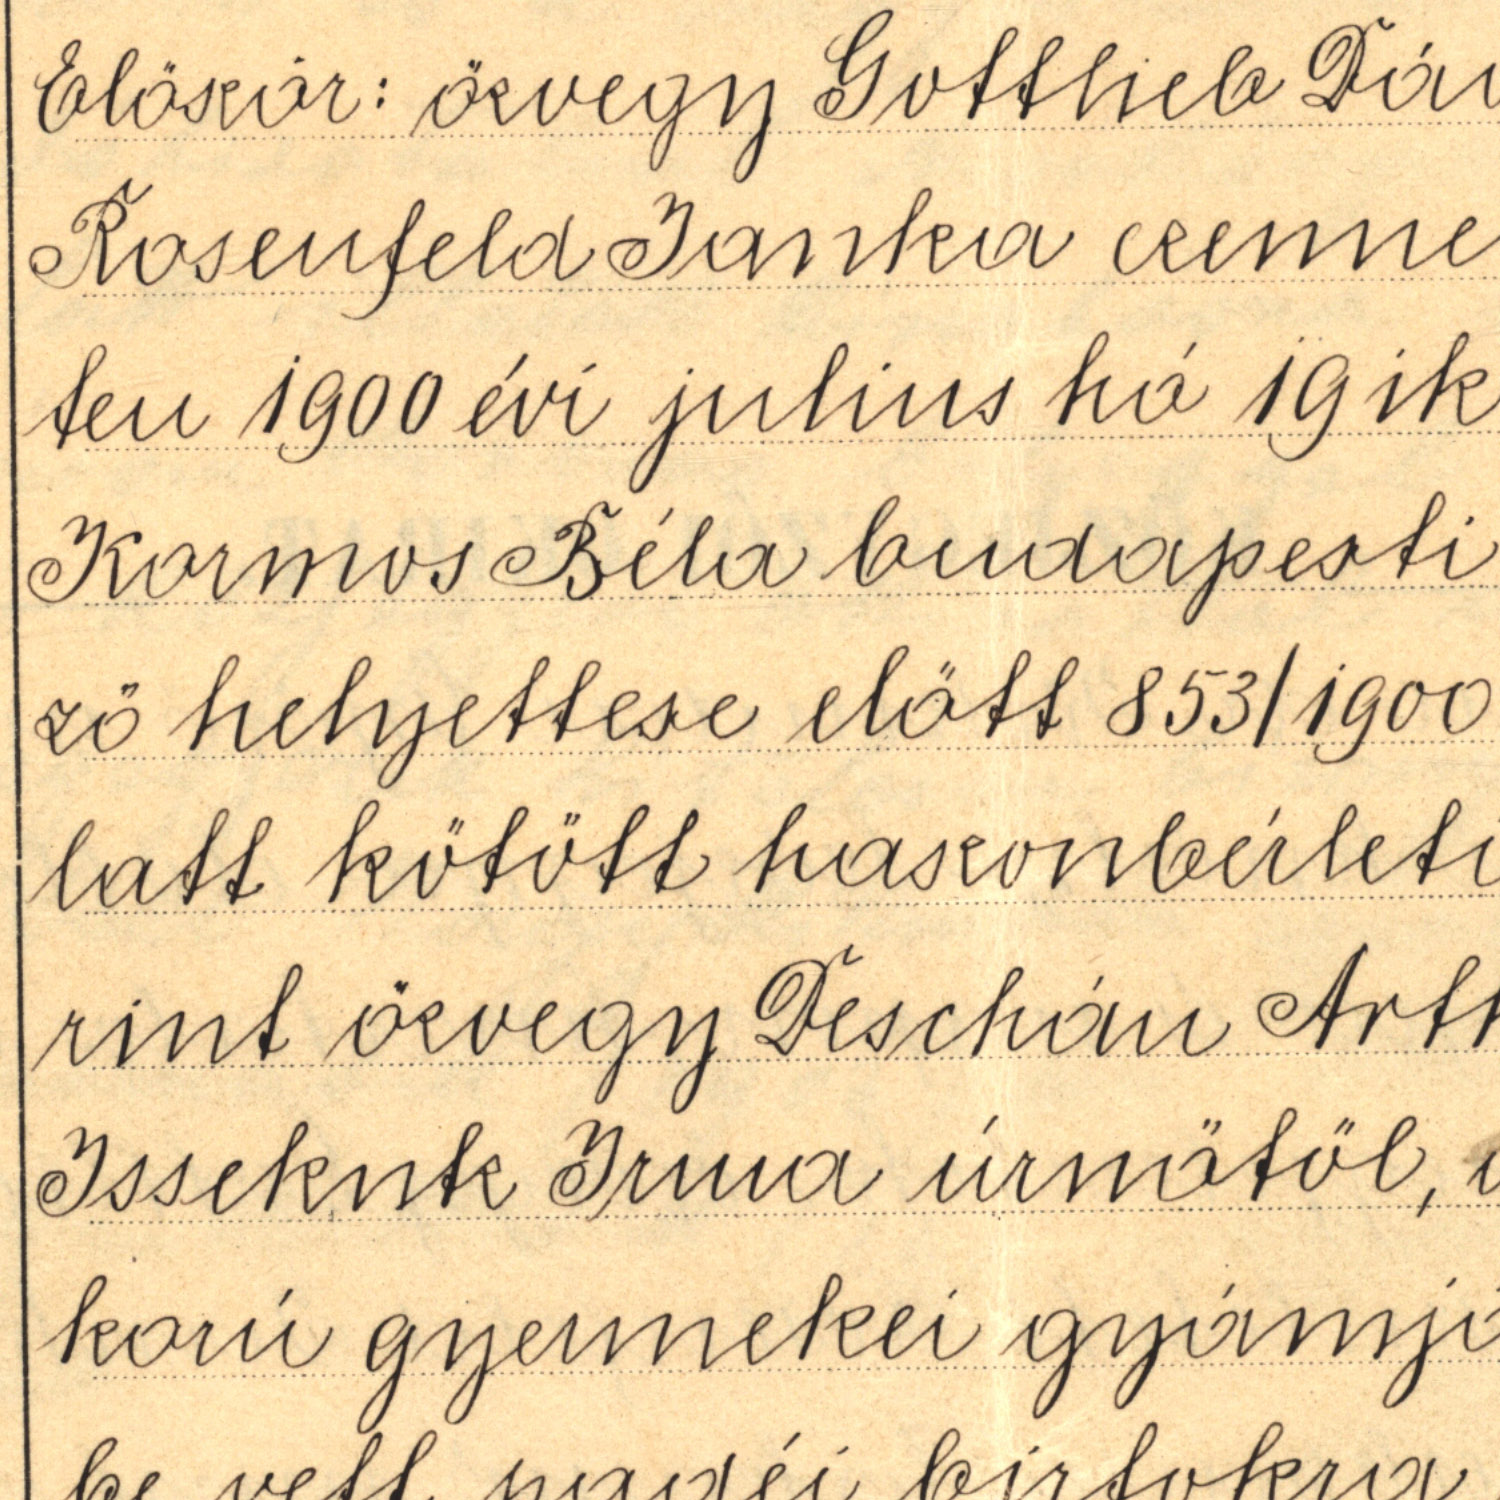 Először: özvegy Gottlieb Dáv
Rosenfeld Janka czenne
ten 1900 évi julius hó 19 ik
Kormos Béla budapesti
ző helyettese előtt 853/1900
latt kötött haszonbérleti
rint özvegy Deschán Arth
Issekutz Irma úrnőtől,
korú gyermekei gyámja
be vett magéi birtokra